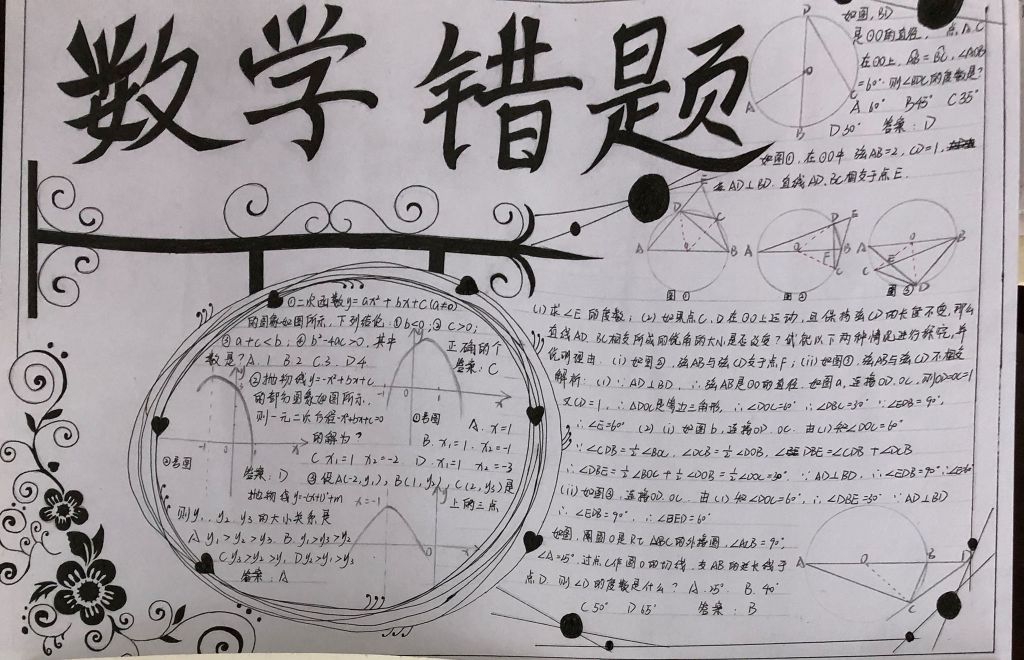 数学错题
如图，BD
是⊙O的直径，点A、C
在⊙O上，AB=BC，∠AOB
=60°则∠BDC的度数是?
A.60° B45° C.35°
D30° 答案：D
如图①，在⊙O中 弦AB=2，CD=1，
AD⊥BD.直线AD、BC相交于点E.
图①
图②
图③
(1)求∠E的度数；(2)如果点C、D在⊙O上运动，且保持弦CD的长度不变，那么
直线AD、BC相交所成的锐角的大小是否改变？试就以下两种情况进行探究，并
说明理由.(i)如图②，弦AB与弦CD交于点F；(ii)如图③，弦AB与弦CD不相交
解析：(1)∵AD⊥BD，∴弦AB是⊙O的直径.如图a，连接OD、OC，则OD=OC=1
又CD=1，∴△DOC是等边三角形，∴∠DOC=60°∴∠DBC=30°∵∠EDB=90°，
∴∠E=60° (2)(i)如图b，连接OD、OC.由(1)知∠DOC=60°
∵∠CDB=½∠BOC，∠DCB=½∠DOB，∠DBE=∠CDB+∠DCB
∴∠DBE=½∠BOC+½∠DOB=½∠DOC=30° ∵AD⊥BD，∴∠EDB=90°∴∠E=60°
(ii)如图③，连接OD、OC.由(1)知∠DOC=60°，∴∠DBE=30° ∵AD⊥BD
∴∠EDB=90°，∴∠BED=60°
如图，圆O是Rt ABC的外接圆，∠ACB=90°，
∠A=25°，过点C作圆O的切线，交AB的延长线于
点D.则∠D的度数是什么？ A.25° B.40°
C50° D65° 答案：B
①二次函数y=ax²+bx+c(a≠0)
的图象如图所示，下列结论：①b<0；②c>0；
③a+c<b；④b²-4ac>0，其中
正确的个
数是？A.1 B2 C3. D4
答案：C
②抛物线y=-x²+bx+c
的部分图象如图所示，
则一元二次方程-x²+bx+c=0
的解为？
①号图
A. x=1
B. x₁=1. x₂=-1
C x₁=1 x₂=-2 D. x₁=1 x₂=-3
②号图
答案：D ③设A(-2,y₁)，B(1,y₂)，C(2,y₃)是
抛物线y=-(x+1)²+m x=-1 上的三点
则y₁、y₂.y₃的大小关系是
A y₁>y₂>y₃. B. y₁>y₃>y₂
C.y₃>y₂>y₁ D.y₂>y₁>y₃
答案：A